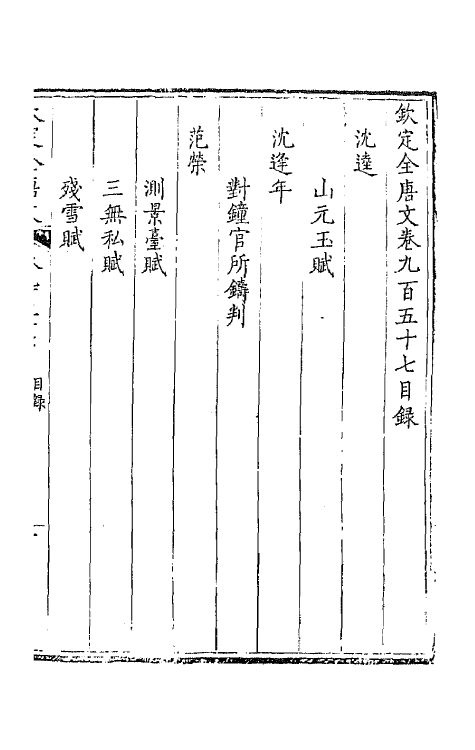 欽定全唐文卷九百五十七目録
沈逵
山元玉賦
沈逢年
對鐘官所鑄判
范榮
測景臺賦
三無私賦
殘雪賦
目録